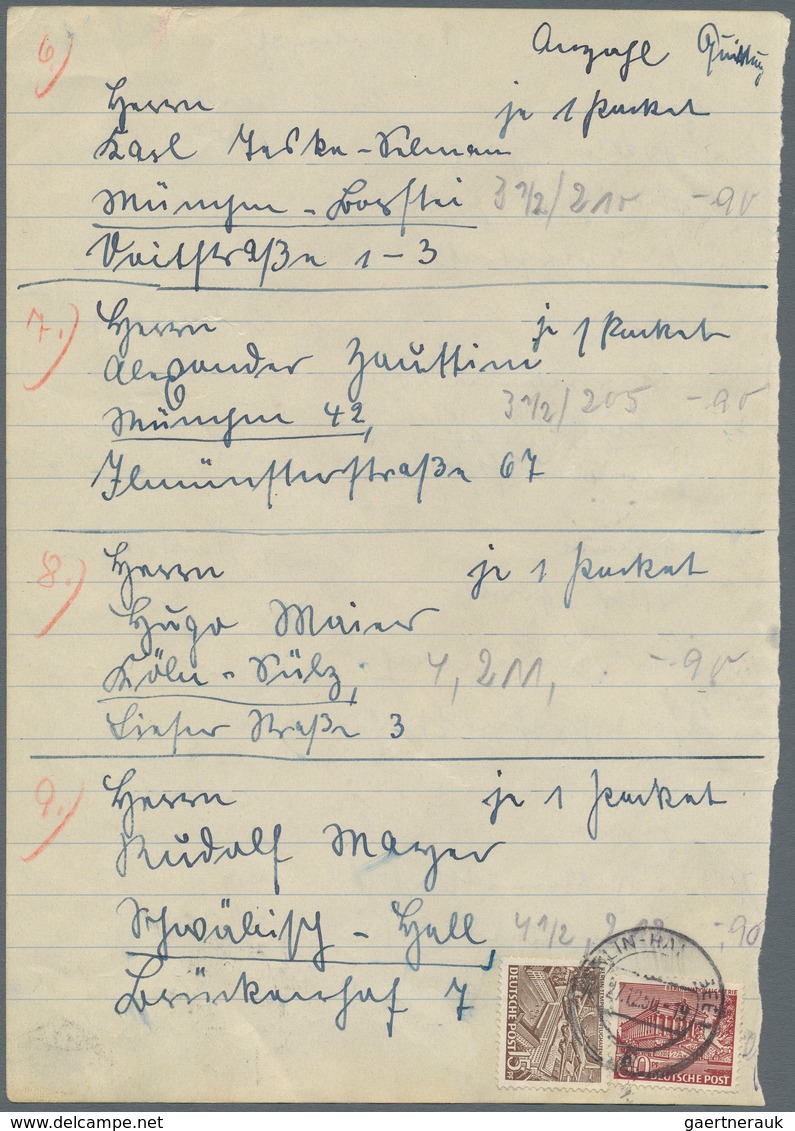 Anzahl Quittung
6)
Herrn je 1 Packet
Karl Jeska-Selmann
München-Borstei 3 1/2/210 -90
Voitstraße 1-3
7.)
Herrn je 1 Packet
Alexander
München 42, 3 1/2/205 -90
Ilmünsterstraße 67
8.)
Herrn je 1 Packet
Hugo Maier
Köln-Sülz, 4, 211, -90
Lieser Straße 3
9.)
Herrn je 1 Packet
Rudolf Mayer
Schwäbisch-Hall, 4 1/2, 212 -,90
Brückenhof 7
DEUTSCHE POST 15
DEUTSCHE POST
www.delcampe.net
gaertnerauk